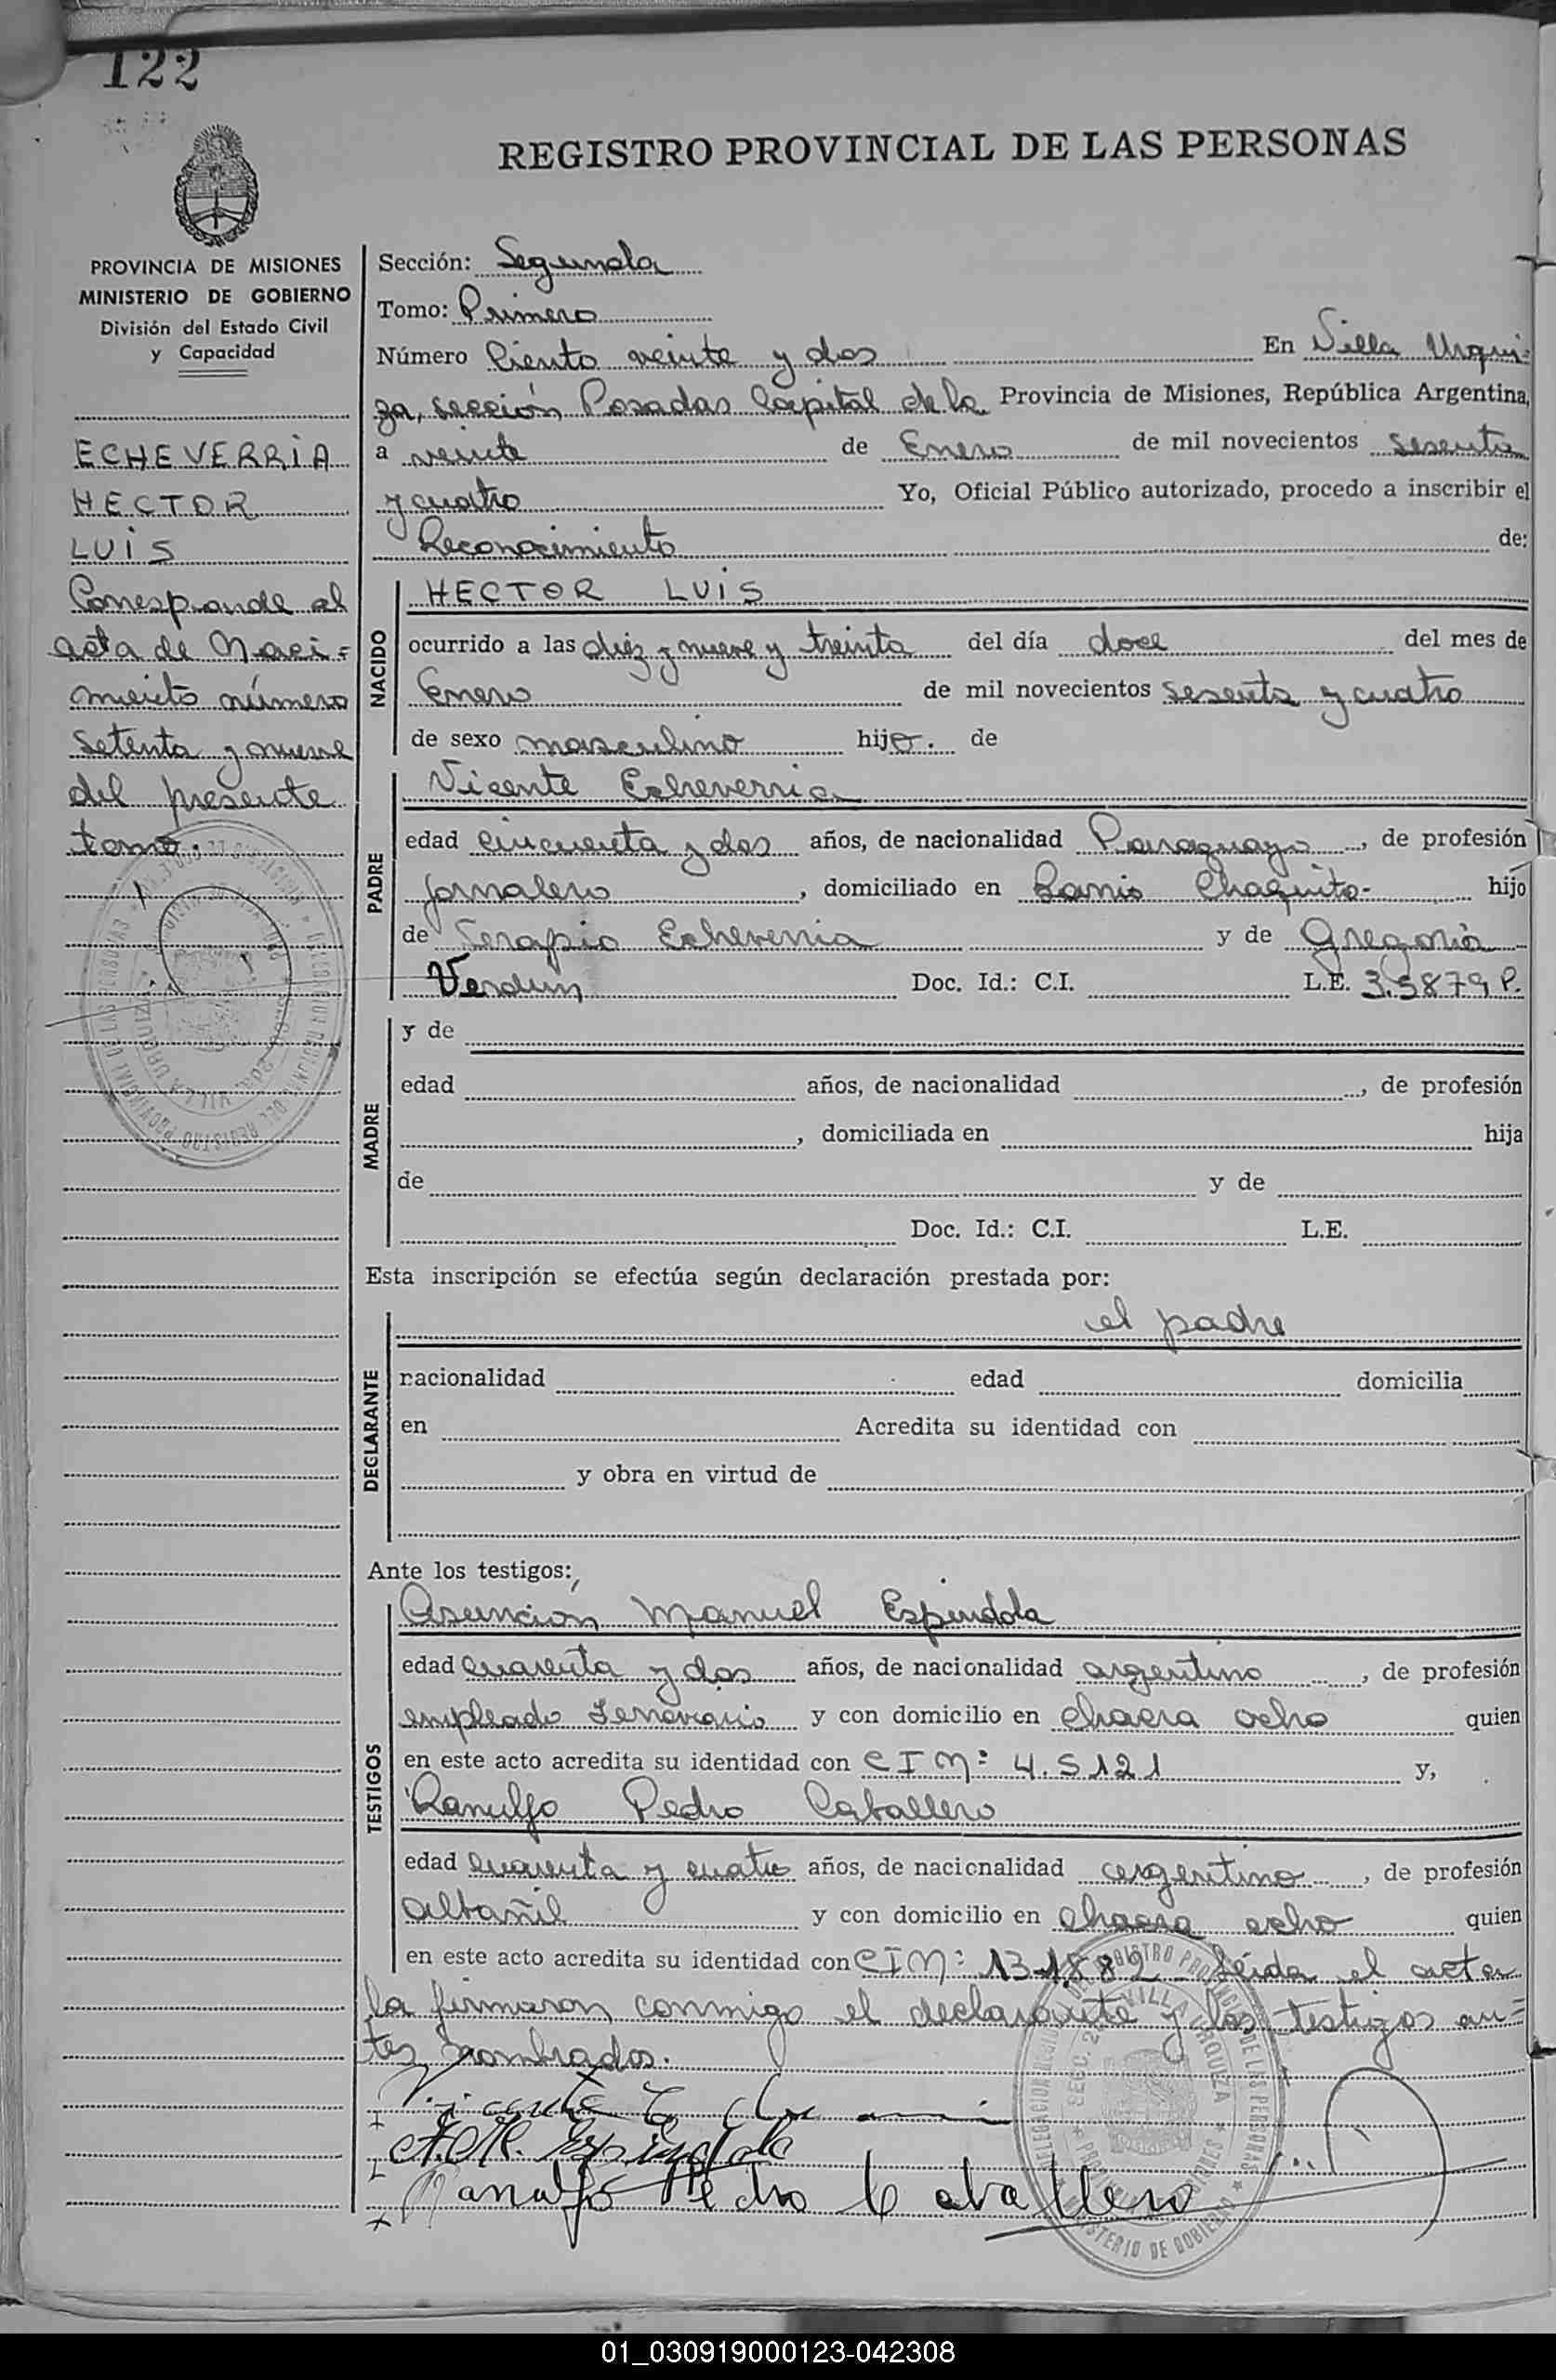 122
REGISTRO PROVINCIAL DE LAS PERSONAS
PROVINCIA DE MISIONES
MINISTERIO DE GOBIERNO
División del Estado Civil
y Capacidad
ECHEVERRIA
HECTOR
LUIS
Corresponde al
acta de Naci=
miento número
setenta y nueve
del presente
tomo.
Sección: Segunda
Tomo: Primero
Número Ciento veinte y dos En Villa Urqui=
za, sección Posadas Capital de la Provincia de Misiones, República Argentina,
a veinte de Enero de mil novecientos sesenta
y cuatro Yo, Oficial Público autorizado, procedo a inscribir el
Reconocimiento de:
NACIDO
HECTOR LUIS
ocurrido a las diez y nueve y treinta del día doce del mes de
Enero de mil novecientos sesenta y cuatro
de sexo masculino hijo. de
PADRE
Vicente Echeverria
edad cincuenta y dos años, de nacionalidad Paraguayo, de profesión
Jornalero, domiciliado en Barrio Chaquito- hijo
de Serapio Echeverria y de Gregoria
Verdun Doc. Id.: C.I. L.E. 3.5879 P.
MADRE
y de
edad años, de nacionalidad , de profesión
, domiciliada en hija
de y de
Doc. Id.: C.I. L.E.
Esta inscripción se efectúa según declaración prestada por:
DECLARANTE
el padre
nacionalidad edad domicilia
en Acredita su identidad con
y obra en virtud de
Ante los testigos:
TESTIGOS
Asunción Manuel Espindola
edad cuarenta y dos años, de nacionalidad argentino, de profesión
empleado Ferroviario y con domicilio en chacra ocho quien
en este acto acredita su identidad con C I M: 4.5121 y,
Ranulfo Pedro Caballero
edad cuarenta y cuatro años, de nacionalidad argentino, de profesión
albañil y con domicilio en chacra ocho quien
en este acto acredita su identidad con C I M: 131882 Leida el acta
la firmaron conmigo el declarante y los testigos an=
tes nombrados.
Vicente
A. M. Espindola
Ranulfo Pedro Caballero
01_030919000123-042308